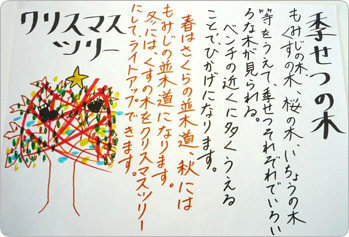 季せつの木
もみじの木、
くすの木、桜の木、いちょうの木
等をうえて、季せつそれぞれでいろい
ろな木が見られる。
ベンチの近くに多くうえる
ことでひかげになります。
春はさくらの並木道、秋には
もみじの並木道になります。
冬には、くすの木をクリスマスツリー
にして、ライトアップできます。
クリスマス
ツリー